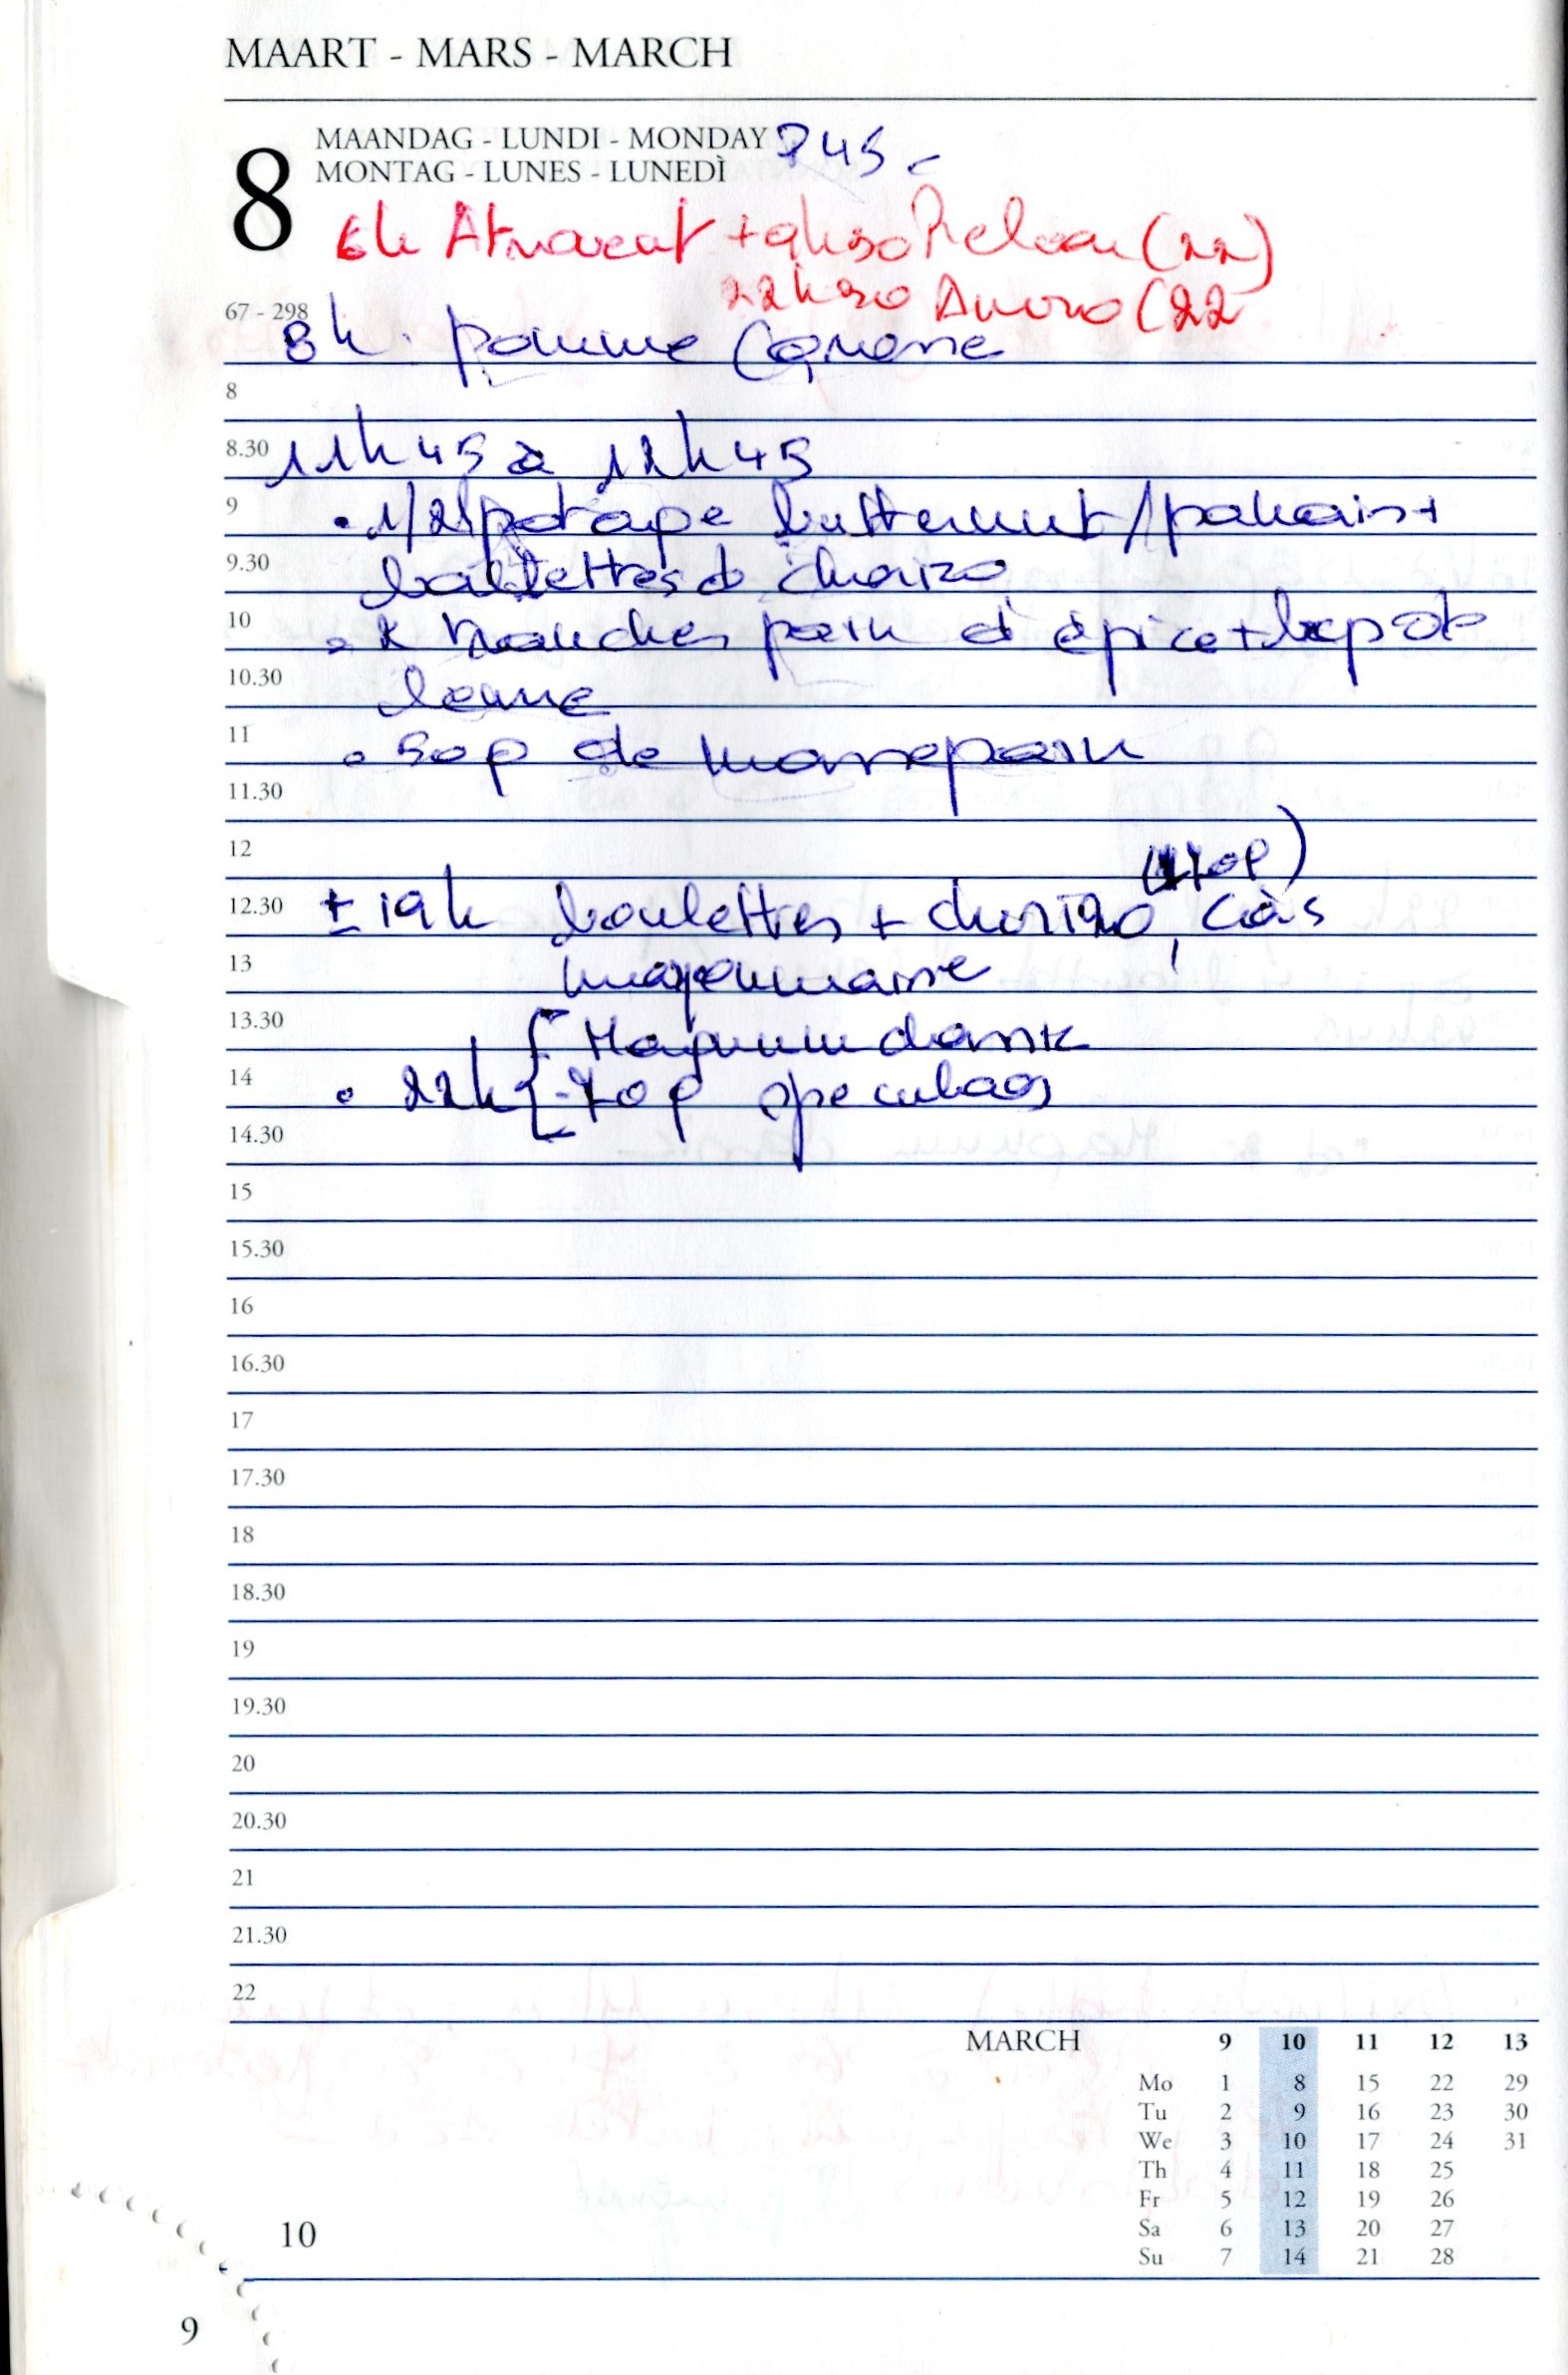 MAART - MARS - MARCH
8
MAANDAG - LUNDI - MONDAY 745
MONTAG - LUNES - LUNEDÌ
6h Atrovent + 9h30 (22)
22h30 (22
67 - 298
8h. pomme
8
8.30 11h45 à 12h45
9 • 1/2l potage butternut/panais +
9.30 boulettes d chorizo
10 • 2 tranches pain d'épice +
10.30
11 • 50g de massepain
11.30
12 (170g)
12.30 ± 19h boulettes + chorizo, càs
13 mayonnaise
13.30 Magnum
14 • 22h 70g speculoos
14.30
15
15.30
16
16.30
17
17.30
18
18.30
19
19.30
20
20.30
21
21.30
22
MARCH 9 10 11 12 13
Mo 1 8 15 22 29
Tu 2 9 16 23 30
We 3 10 17 24 31
Th 4 11 18 25
Fr 5 12 19 26
Sa 6 13 20 27
Su 7 14 21 28
10
9